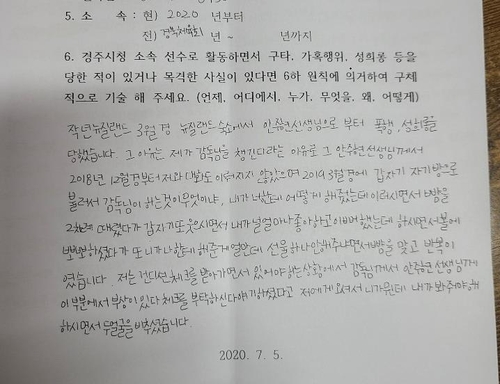 5. 소 속 : 현) 2020 년부터
전) 경북체육회 년 ~ 년까지
6. 경주시청 소속 선수로 활동하면서 구타, 가혹행위, 성희롱 등을
당한 적이 있거나 목격한 사실이 있다면 6하 원칙에 의거하여 구체
적으로 기술 해 주세요. (언제, 어디에서, 누가, 무엇을, 왜, 어떻게)
작년 뉴질랜드 3월경 뉴질랜드 숙소에서 안주현선생님으로 부터 폭행, 성희롱을
당했습니다. 그 이유는 제가 감독님을 챙긴다라는 이유로 그 안주현선생님께서
2018년 12월경부터 저와 대화도 이뤄지지 않았으며 2019 3월경에 갑자기 자기방으로
불러서 감독님이 하는것이 무엇이냐, 내가 너한테 어떻게 해줬는데 이러시면서 뺨을
2차례 때렸다가 갑자기 또 웃으시면서 내가 널 얼마나 좋아하고 이뻐했는데 하시면서 볼에
뽀뽀하셨다가 또 니가 나한테 해준게 얼만데 선물 하나 안해주냐면서 뺨을 맞고 반복이
였습니다. 저는 컨디션체크를 받아가면서 있어야하는 상황에서 감독님께서 안주현선생님께
이 부분에서 부상이 있다 체크를 부탁하신다 얘기하셨다고 저에게 오셔서 니가 뭔데 내가 봐줘야해
하시면서 두얼굴을 비추셨습니다.
2020. 7. 5.